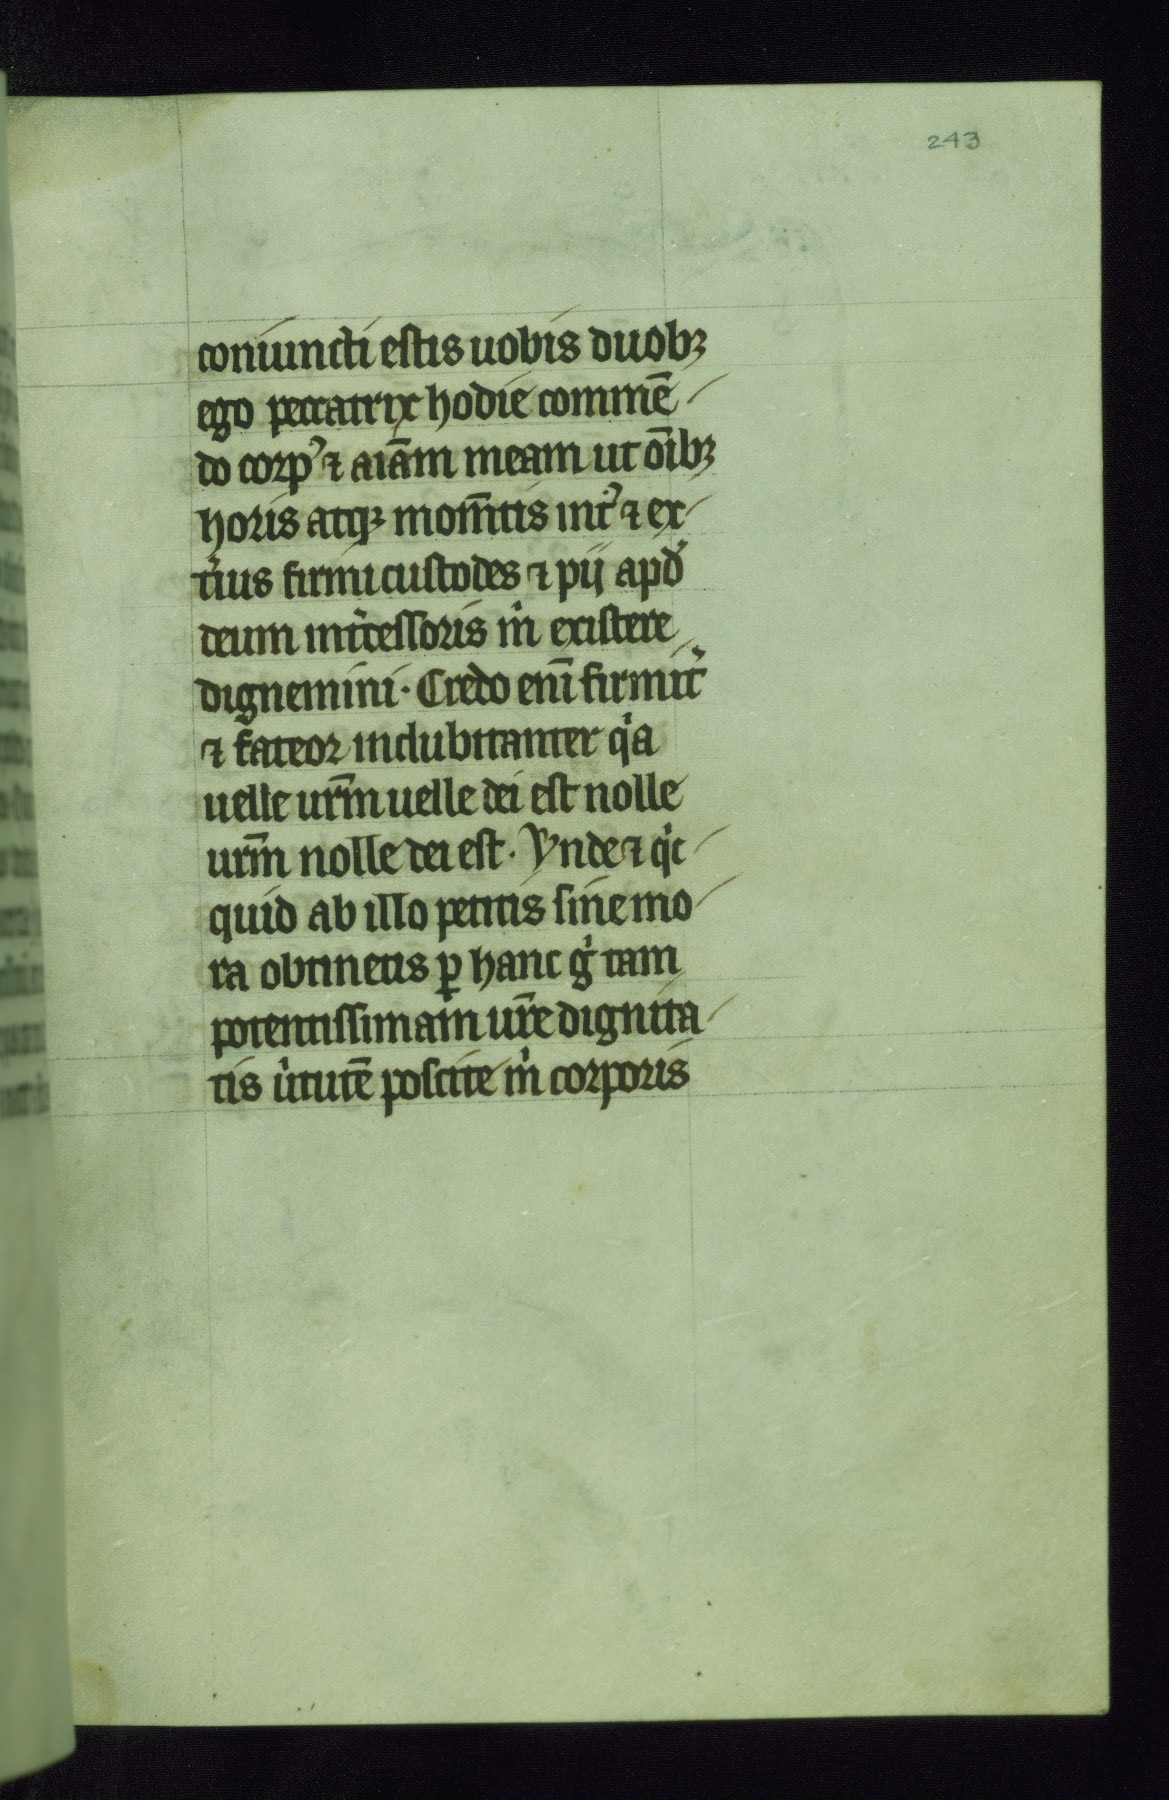 243
coniuncti estis uobis duobꝫ
ego peccatrix hodie commē
do corpꝰ ⁊ aīam meam ut oībꝫ
horis atqꝫ mom̄tis intͥ ⁊ ex
tͥius firmi custodes ⁊ pij apđ
deum intͥcessoris mͥ existere
dignemini · Credo enī firmit᷑
⁊ fateor indubitanter qͥa
uelle ur̄m uelle dei est nolle
ur̄m nolle dei est · Vnde ⁊ qͥc
quid ab illo petitis sine mo
ra obtinetis ꝑ hanc gͥ tam
potentissimam ur̄e dignita
tis uͥtutē poscite mͥ corporis